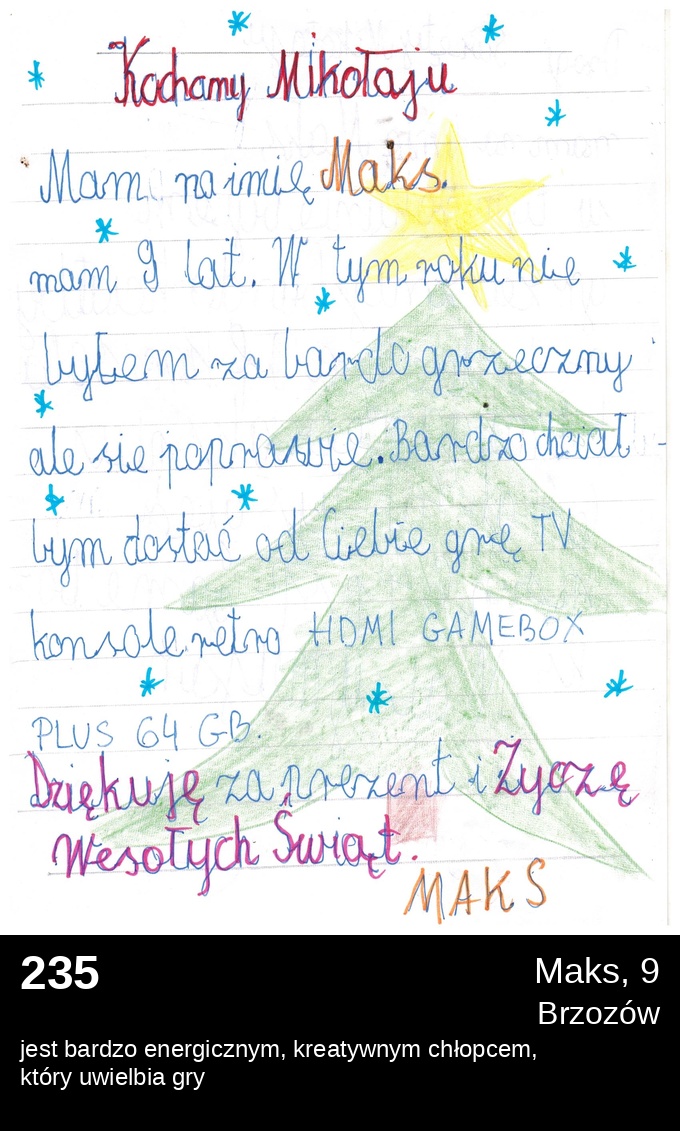 Kochamy Mikołaju
Mam na imię Maks.
mam 9 lat. W tym roku nie
byłem za bardo grzeczny
ale sie poprawie. Bardzo chciał-
bym dostać od Ciebie grę TV
konsole retro HDMI GAMEBOX
PLUS 64 GB.
Dziękuję za prezent i Życzę
Wesołych Świąt.
MAKS
235
Maks, 9
Brzozów
jest bardzo energicznym, kreatywnym chłopcem,
który uwielbia gry